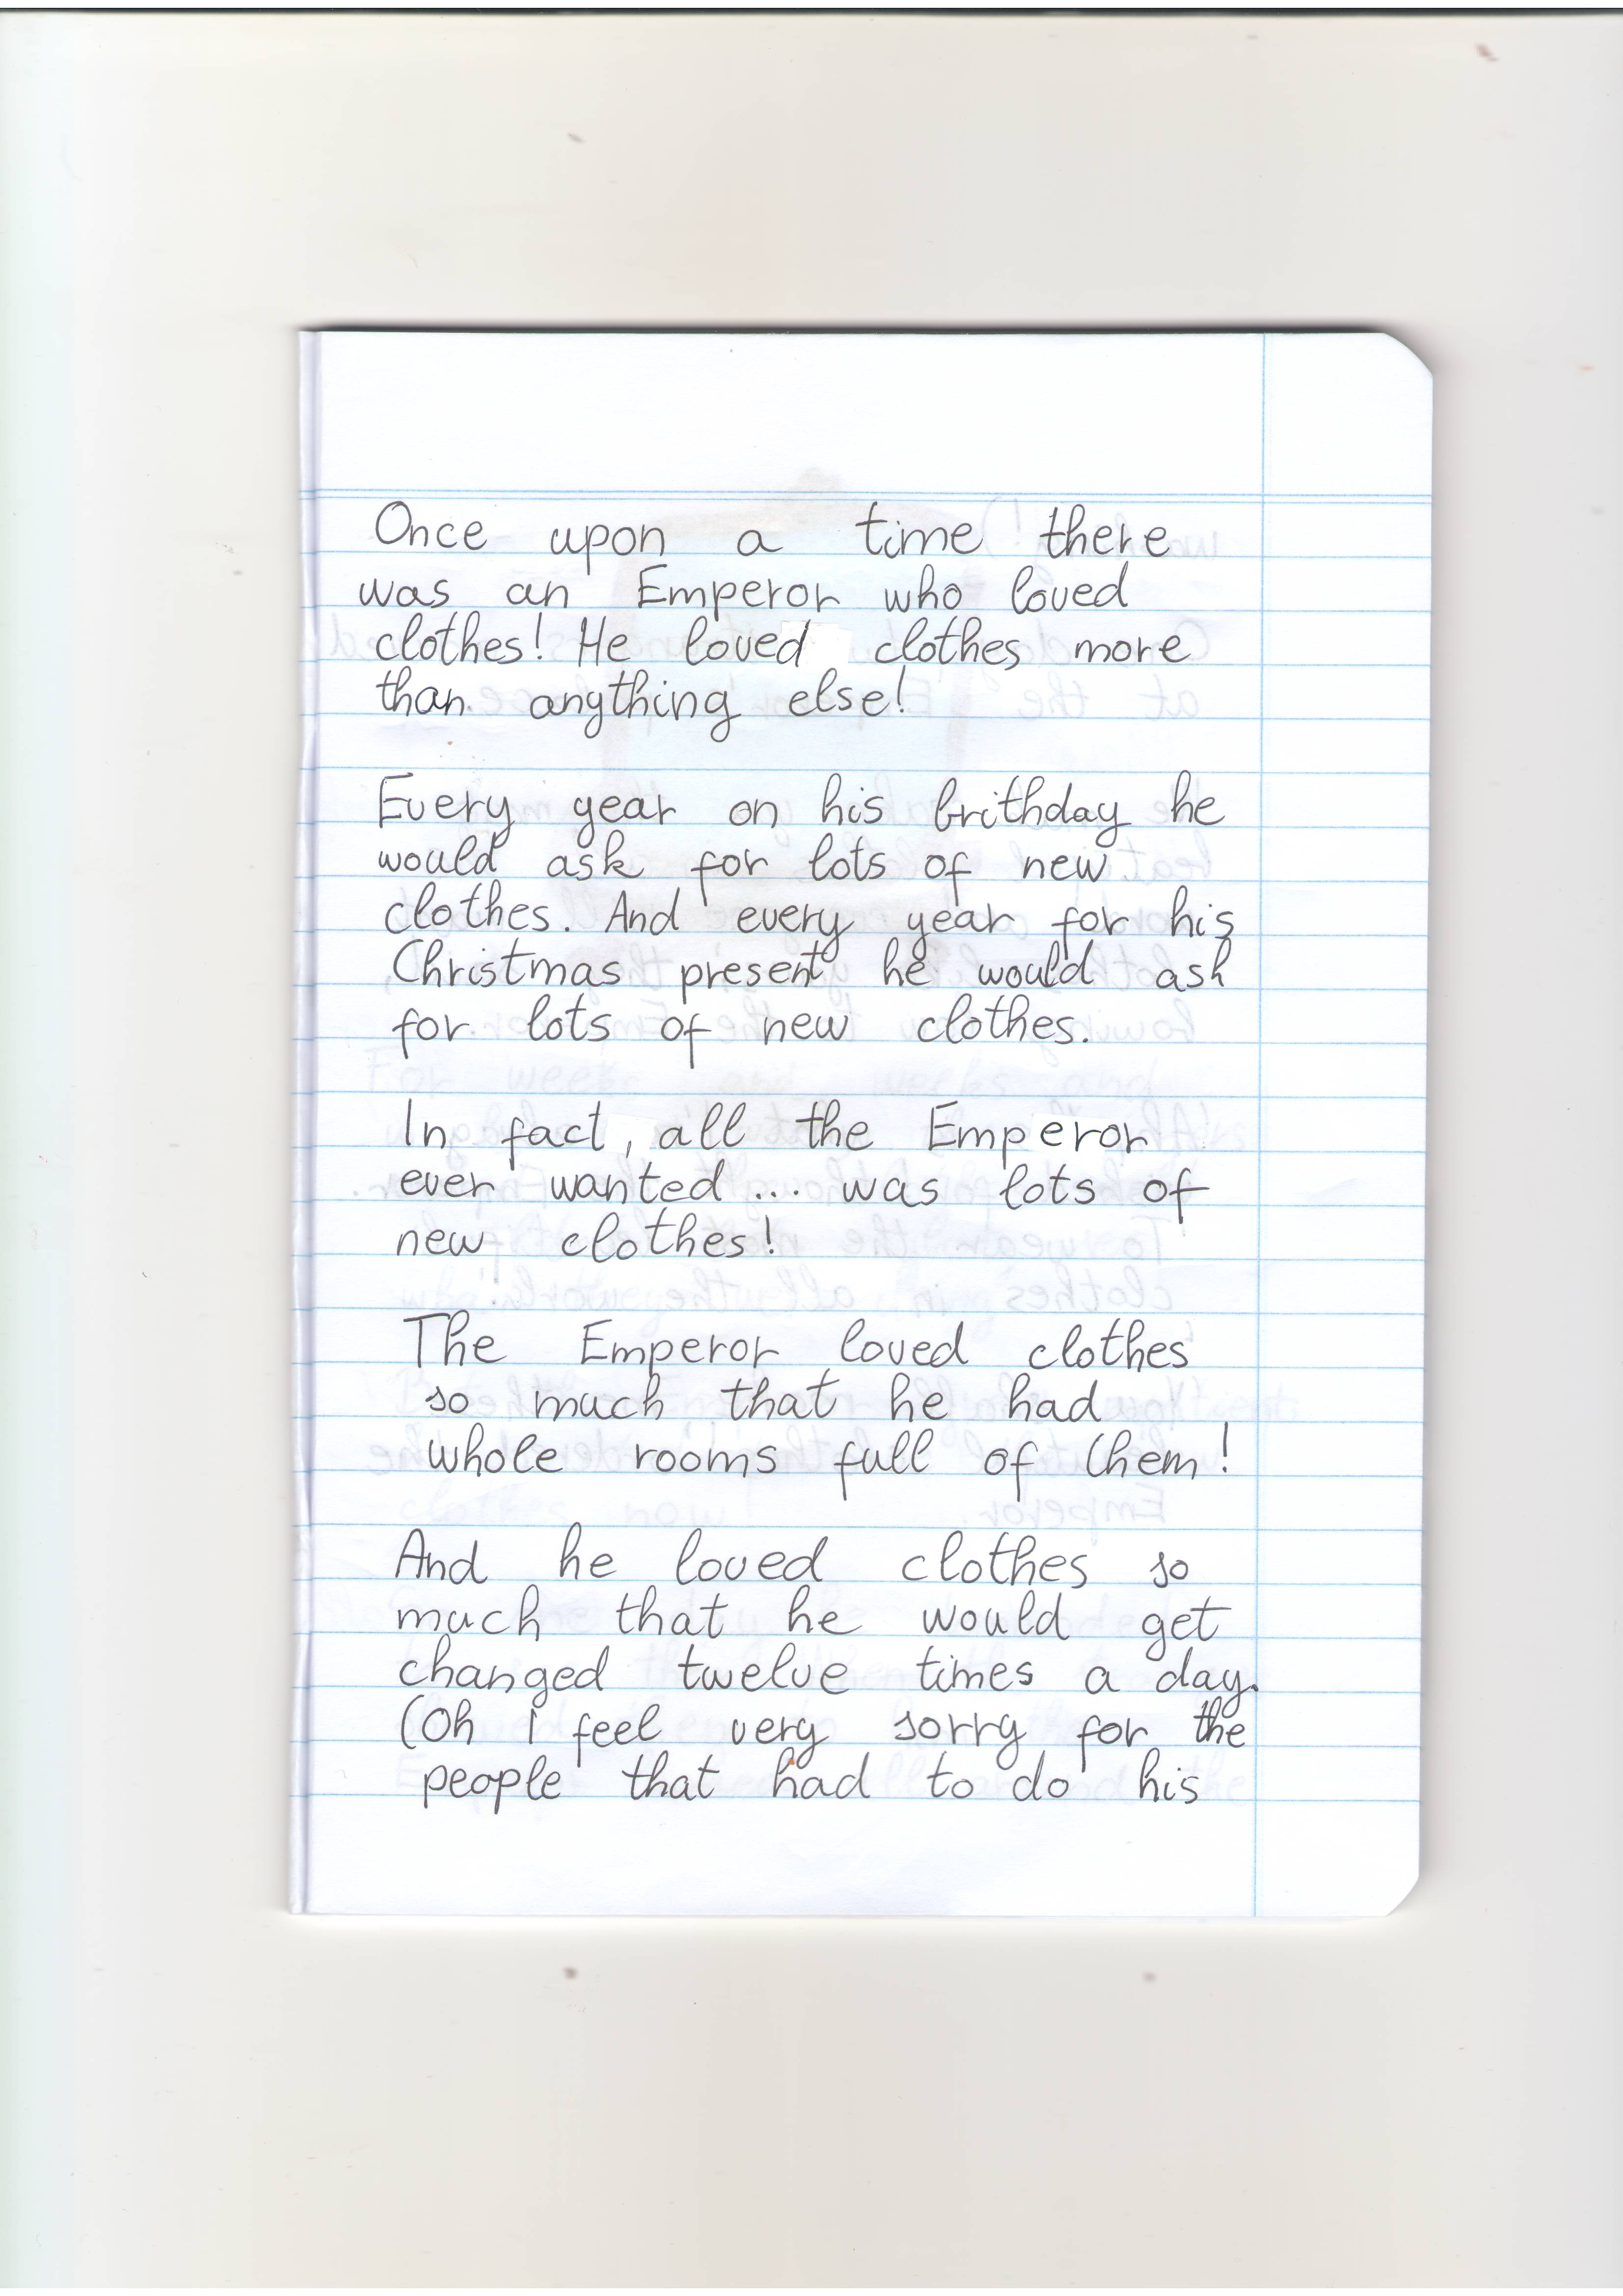 Once upon a time there
was an Emperor who loved
clothes! He loved clothes more
than anything else!
Every year on his brithday he
would ask for lots of new
clothes. And every year for his
Christmas present he would ask
for lots of new clothes.
In fact, all the Emperor
ever wanted ... was lots of
new clothes!
The Emperor loved clothes
so much that he had
whole rooms full of them!
And he loved clothes so
much that he would get
changed twelve times a day.
(Oh I feel very sorry for the
people that had to do his